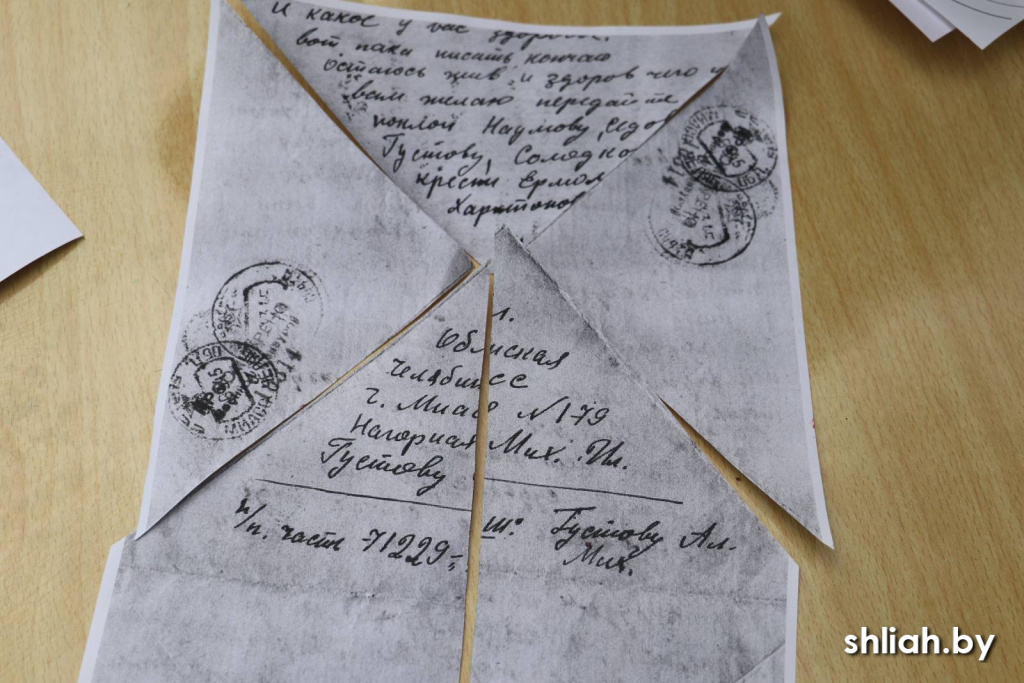 И какое у вас здоровье.
вот пака писать кончаю
остаюсь жив и здоров чего и
вам желаю передайте
поклон Наумову, Седов
Густову, Солодко
крести Ермол
Харитонов
г.
Обл ская
Челябинс
г. Миас N 179
Нагорная Мих. Ил.
Густову
п/п. часть 71229 - ш. Густову Ал.
Мих.
shliah.by